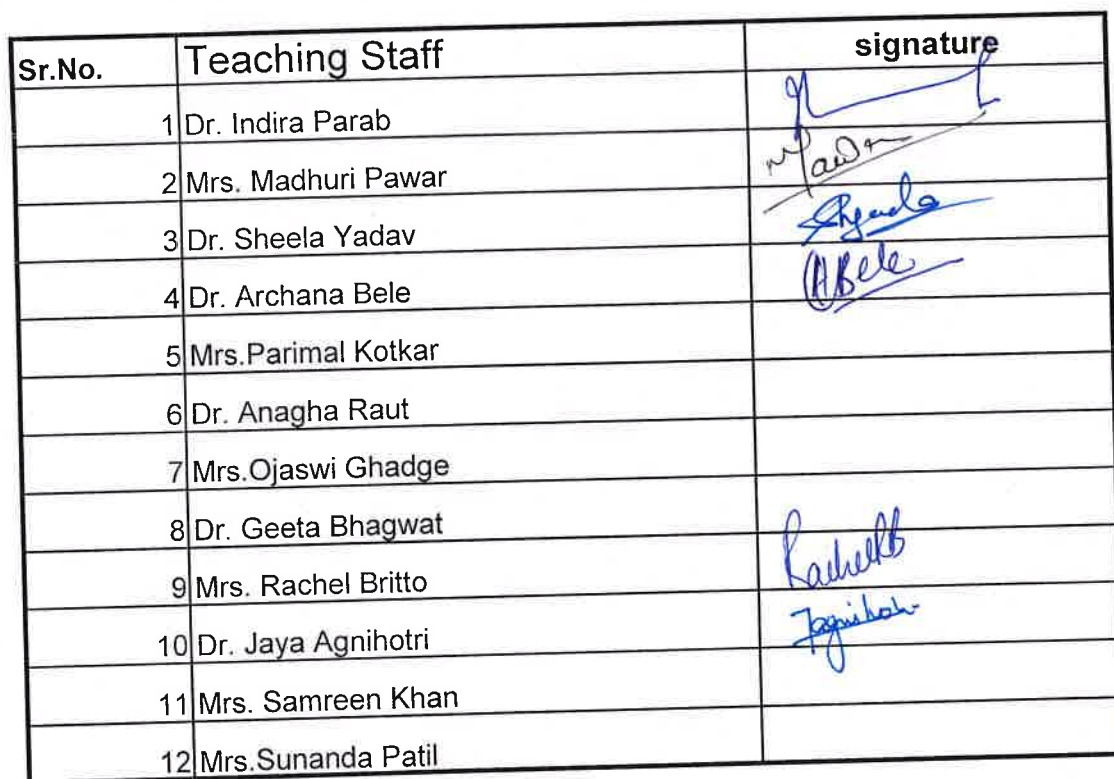 Sr.No. Teaching Staff signature
1 Dr. Indira Parab
2 Mrs. Madhuri Pawar
3 Dr. Sheela Yadav
4 Dr. Archana Bele ABele
5 Mrs.Parimal Kotkar
6 Dr. Anagha Raut
7 Mrs.Ojaswi Ghadge
8 Dr. Geeta Bhagwat
9 Mrs. Rachel Britto RachelRB
10 Dr. Jaya Agnihotri
11 Mrs. Samreen Khan
12 Mrs.Sunanda Patil